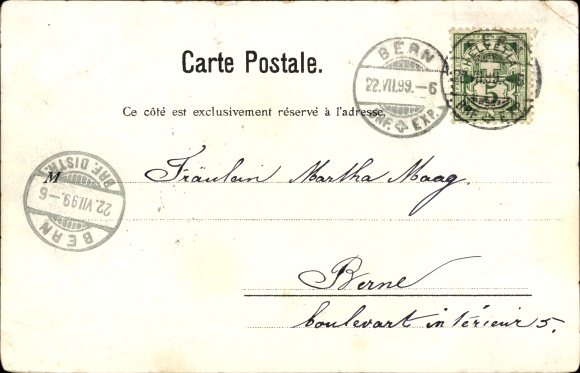 Carte Postale.
Ce côté est exclusivement réservé à l'adresse.
BERN
22.VII.99.-6
BRF. EXP.
HELVETIA
22.VII.99.-6
5
BRF. EXP.
BRF. DISTR.
22.VII.99.-6
BERN
M
Fräulein Martha Maag.
Berne
boulevart intérieur 5.